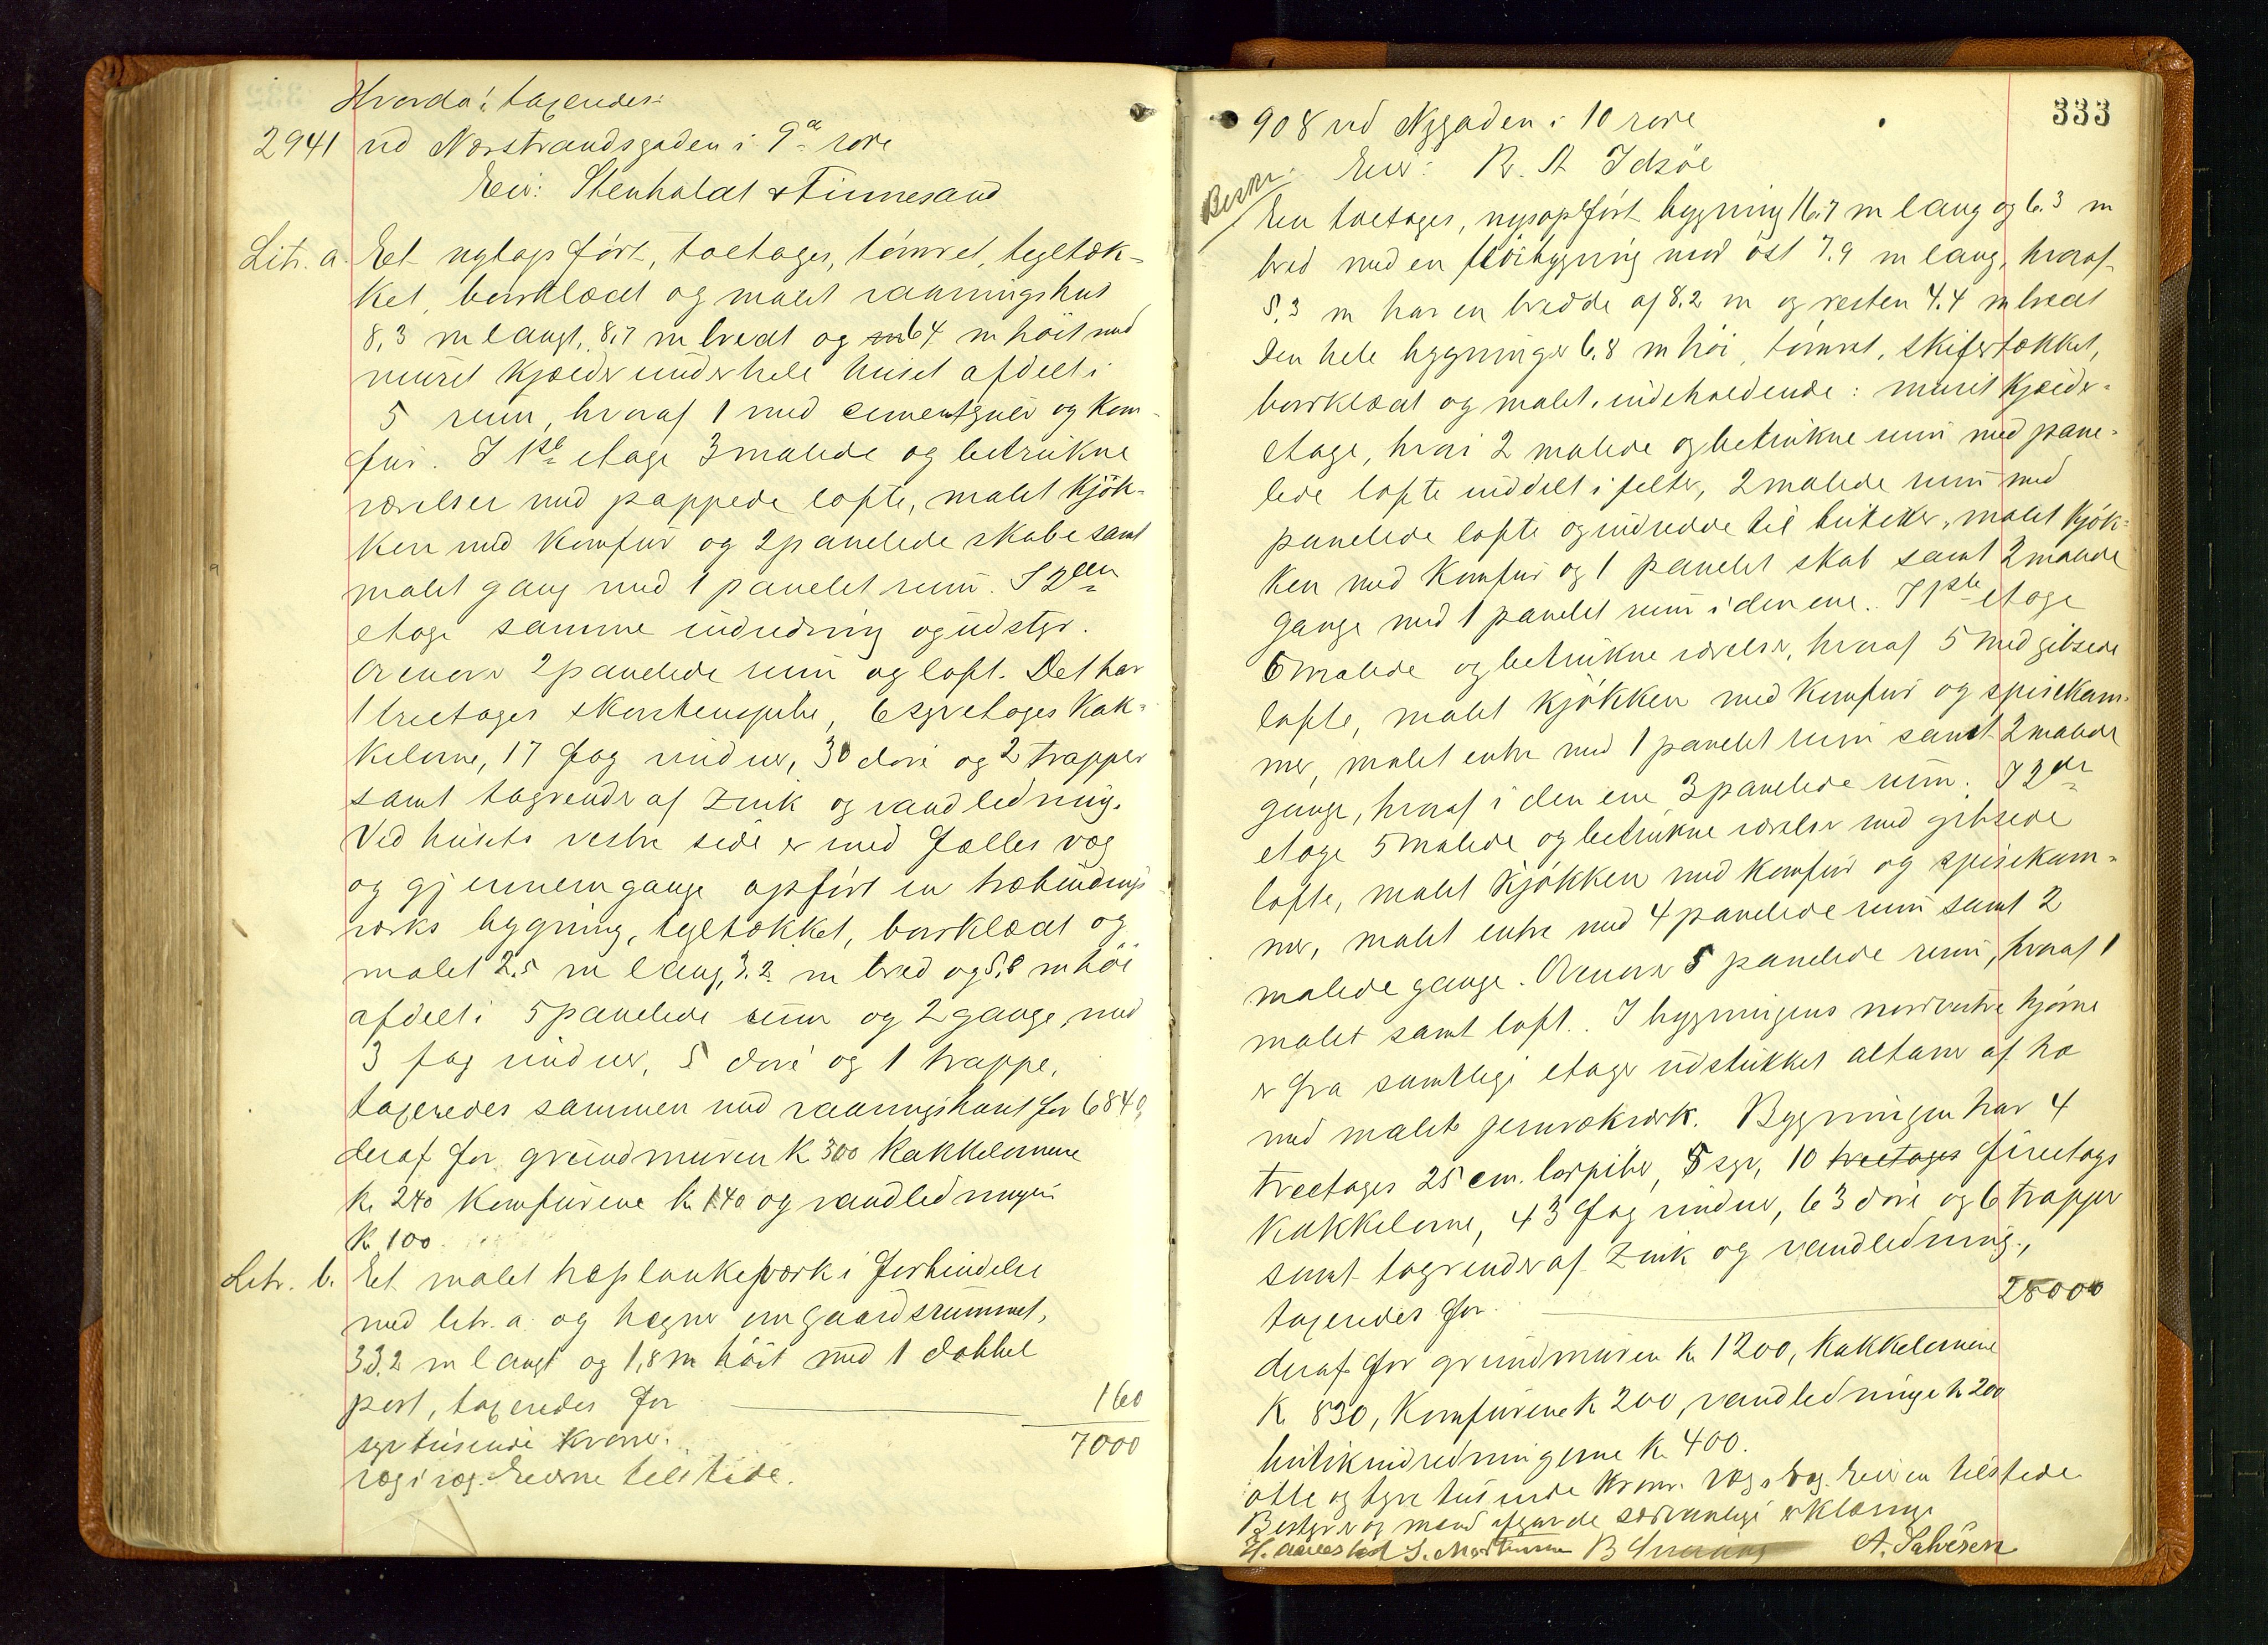 Hvorda i taxeredes:
2941 ved Norstrandsgaden i 9de rode
Eier: Stenholdt & Finnesand
Litr. a. Et nytopført, toetages, tømret, tegltæk-
ket, bordklædt og malet vaaningshus
8,3 m langt, 8,7 m bredt og 6,4 m høit med
muret Kjælder under hele huset afdelt i
5 rum, hvoraf 1 med cementgulv og Kom-
fur. I 1ste etage 3 malede og betrukne
værelser med pappede lofte, malet Kjøk-
ken med Komfur og 2 panelede skabe samt
malet gang med 1 panelet rum. I 2den
etage samme indredning og udstyr.
Ovenover 2 panelede rum og loft. Det har
1 treetages skorstenspibe, 6 syvetages Kak-
kelovne, 17 fag vinduer, 30 døre og 2 trapper
samt tagrender af Zink og vandledning.
Ved husets vestre side er med fælles væg
og gjennemgange opført en træbindings
værks bygning, tegltækket, bordklædt og
malet 2,5 m lang, 3,2 m bred og 5,8 m høi
afdelt i 5 panelede rum og 2 gange, med
3 fag vinduer, 5 døre og 1 trappe,
taxeredes sammen med vaaningshuset for 6840,
deraf for grundmuren K 300 Kakkelovnene
K. 240 Komfurene k 140 og vandledningen
K 100.
Litr. b. Et malet træplankeværk i forbindelse
med litr. a. og hegner om gaardsrummet,
33,2 m langt og 1,8 m høit med 1 dobbel
port, taxeredes for 160
syv tusende Kroner. 7000
væg i væg. Eierne tilstede.
333
908 ved Nygaden i 10 rode
Eier: R. A. Idsøe
Beskr.
En toetages, nyopført bygning 16.7 m lang og 6.3 m
bred med en fløibygning mod øst 7.9 m lang, hvoraf
5,3 m har en bredde af 8.2 m og resten 4.4 m bredt
Den hele bygning er 6.8 m høi, tømret, skifertækket,
bordklædt og malet, indeholdende: muret Kjælder-
etage, hvori 2 malede og betrukne rum med pane-
lede lofte inddelt i felter, 2 malede rum med
panelede lofte og indredde til butiker, malet Kjøk-
ken med Komfur og 1 panelet skab samt 2 malede
gange med 1 panelet rum i den ene. I 1ste etage
6 malede og betrukne værelser, hvoraf 5 med gibsede
lofte, malet Kjøkken med Komfur og spisekam-
mer, malet entre med 1 panelet rum samt 2 malede
gange, hvoraf i den ene 3 panelede rum. I 2den
etage 5 malede og betrukne værelser med gibsede
lofte, malet Kjøkken med Komfur og spisekam-
mer, malet entre med 4 panelede rum samt 2
malede gange. Ovenover 5 panelede rum, hvoraf 1
malet samt loft. I bygningens nordvestre hjørne
er fra samtlige etager udstukket altaner af træ
med malet jernrækværk. Bygningen har 4
treetages 25 cm. løbpiber, 5 syv, 10 treetages fireetags
Kakkelovne, 43 fag vinduer, 63 døre og 6 trapper
samt tagrender af Zink og vandledning,
taxeredes for 28000
deraf for grundmuren k 1200, Kakkelovnene
K 830, Komfurene K 200, vandledninge k 200
butikindredningerne K 400.
otte og tyve tusinde Kroner. Væg i væg. Eieren tilstede
Bestyrer og mænd afgav de sædvanlige erklæringe
H. Aarestad S. Mortensen A. Salvesen